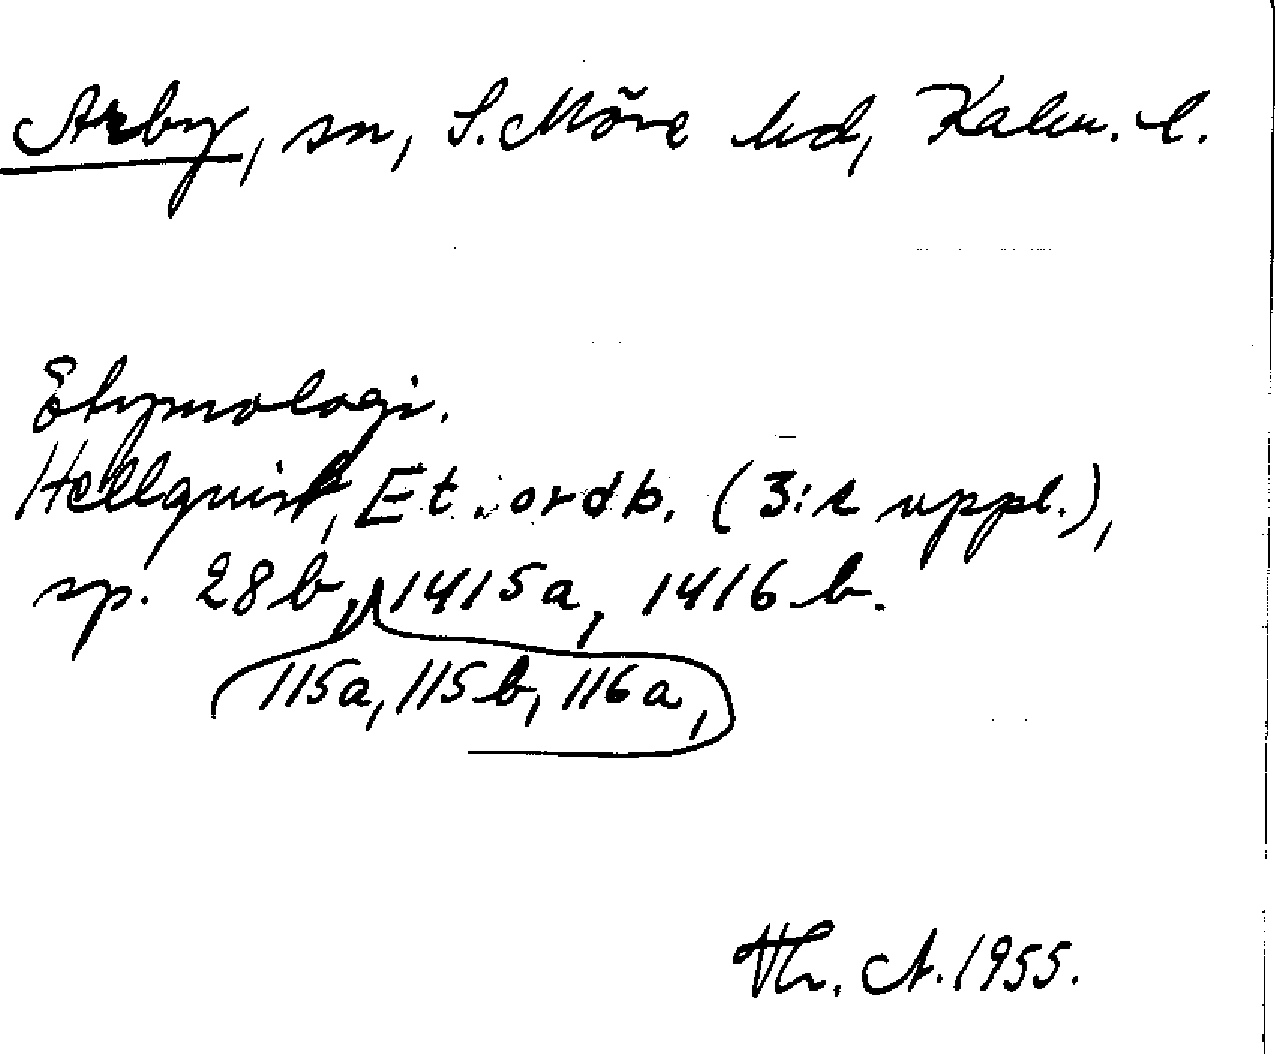 Arby, sn, S. Möre hd, Kalm. l.
Etymologi.
Hellquist, Et. ordb. (3:e uppl.),
sp. 28b, 1415a, 1416b.
115a, 115b, 116a,
Th. A. 1955.